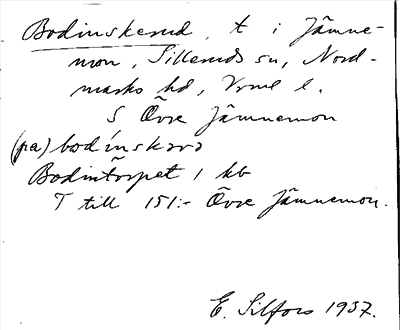 Bodinskerud, t. i Jämne-
mon, Silleruds sn, Nord-
marks hd, Vrml l.
S Övre Jämnemon
(pa) bodinskärə
Bodintorpet 1 kb
T till 151:- Övre Jämnemon.
E. Silfors 1937.